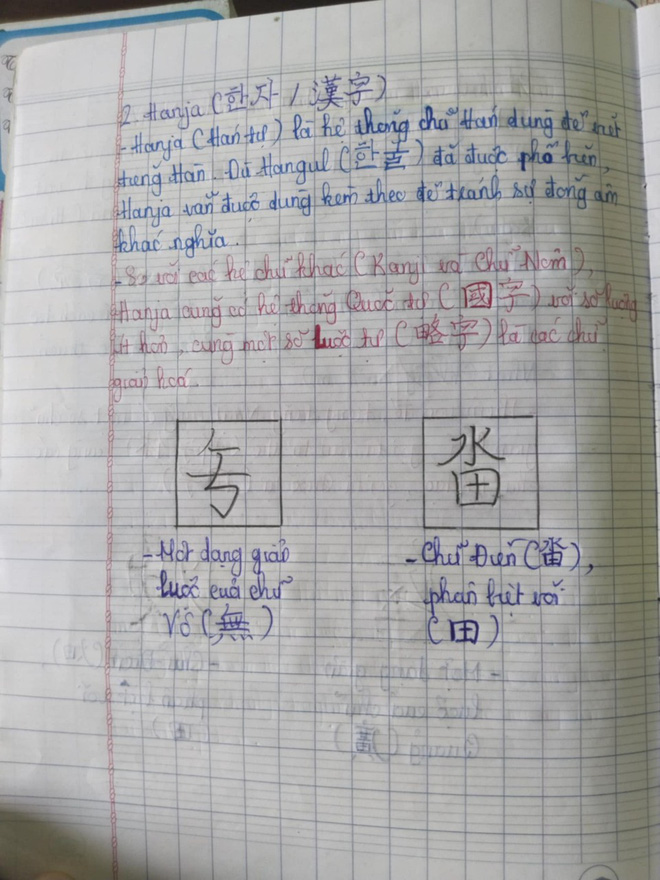 2. Hanja (한자 / 漢字)
- Hanja (Hán tự) là hệ thống chữ Hán dùng để viết
tiếng Hàn. Dù Hangul (한글) đã được phổ biến,
Hanja vẫn được dùng kèm theo để tránh sự đồng âm
khác nghĩa.
- So với các hệ chữ khác (Kanji và Chữ Nôm),
Hanja cũng có hệ thống Quốc tự (國字) với số lượng
ít hơn, cùng một số lược tự (略字) là các chữ
giản hoá.
水田
- Một dạng giản
lược của chữ
Vô (無)
- Chữ Điền (畓),
phân biệt với
(田)